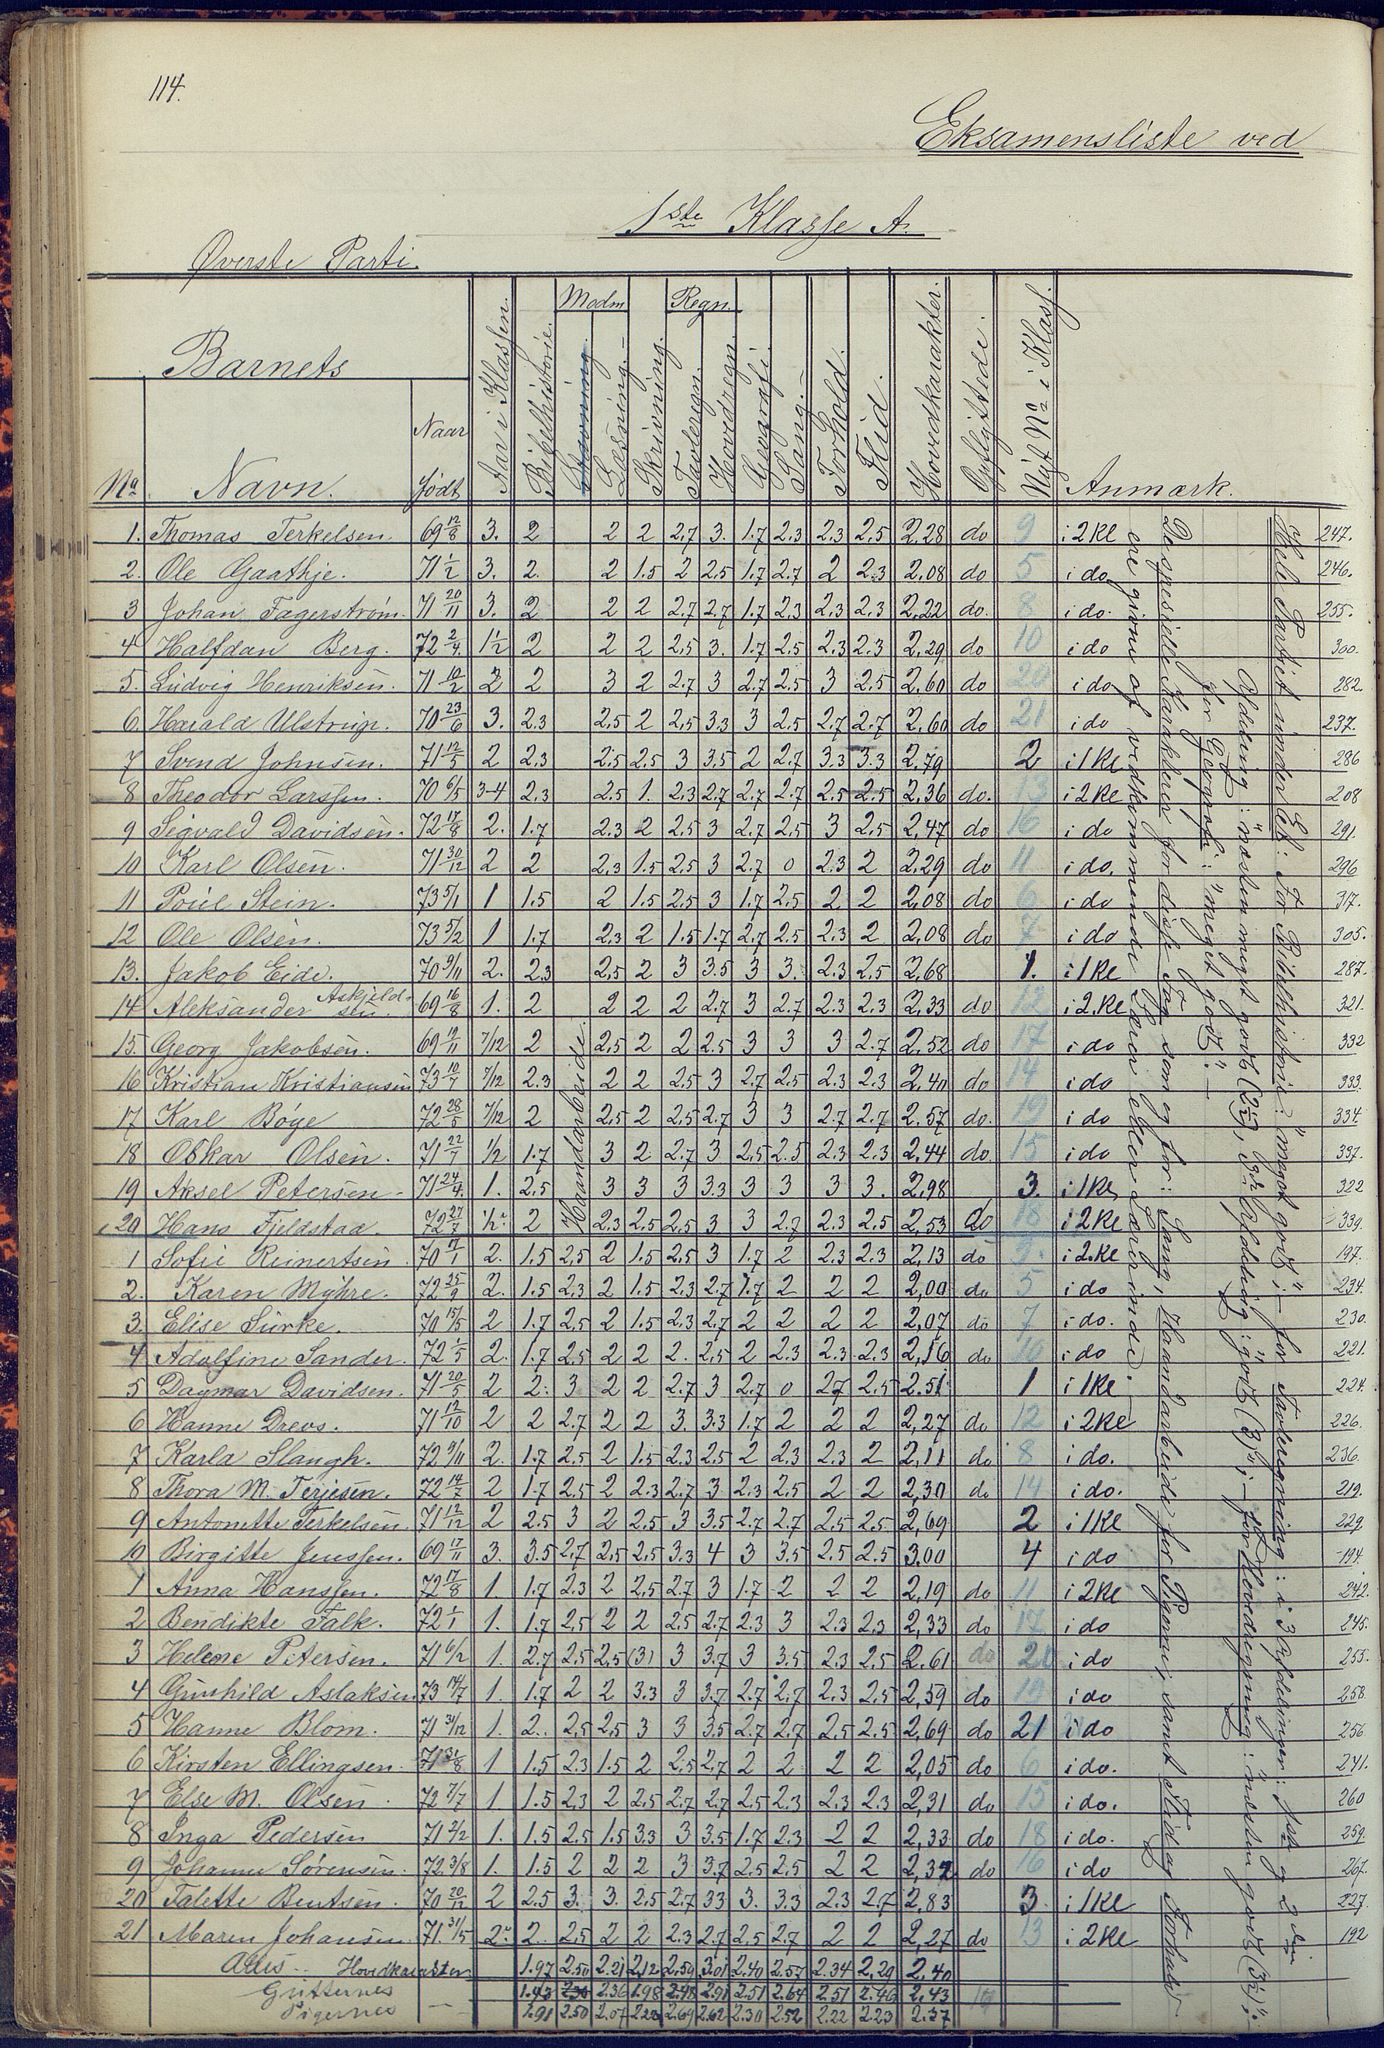 114.
Eksamensliste ved
1ste Klasse A.
Øverste Parti.
Barnets
No Navn. Naar født Aar i Klassen. Bibelhistorie. Modm Læsning. Skrivning. Regn. Tavleregn. Hovedregn. Geografi. Sang. Forhold. Flid. Hovedkarakter. Opflyttede. Nyt No i Klass. Anmærk.
1. Thomas Terkelsen. 69 12/8 3. 2 2 2 2.7 3. 1.7 2.3 2.3 2.5 2.28 do 9 i 2 Kl 247.
2. Ole Gaathje. 71 1/2 3. 2. 2 1.5 2 2.5 1.7 2.7 2 2.3 2.08 do 5 i do 246.
3 Johan Fagerstrøm. 71 20/11 3. 2 2 2 2.7 2.7 1.7 2.3 2.3 2.3 2.22 do. 8 i do. 255.
4 Halfdan Berg. 72 2/4 1½ 2 2 2 2.5 3. 1.7 2.5 2.3 2.3 2.29 do 10 i do 300.
5. Ludvig Henriksen. 71 10/2 2 2 3 2 2.7 3 2.7 2.5 3 2.5 2.60 do 20 i do 282.
6. Harald Ulstrup. 70 23/6 3. 2.3 2.5 2 2.5 3.3 3 2.5 2.7 2.7 2.60 do 21 i do 237.
7 Svend Johnsen. 71 12/5 2 2.3 2.5 2.5 3 3.5 2 2.7 3.3 3.3 2.79 2 i 1 Kl 286
8 Theodor Larssen. 70 6/5 3-4 2.3 2.5 1. 2.3 2.7 2.7 2.7 2.5 2.5 2.36 do. 13 i 2 Kl 208
9 Sigvald Davidsen. 72 17/8 2. 1.7 2.3 2 2.5 3 2.7 2.5 3 2.5 2.47 do 16 i do 291.
10 Karl Olsen. 71 30/12 2 2 2.3 1.5 2.5 3 2.7 0 2.3 2 2.29 do 11 i do. 296
11 Poul Stein. 73 5/1 1 1.5 2 1.5 2.5 3 1.7 2.5 2 2 2.08 do 6 i do 317.
12 Ole Olsen. 73 5/2 1 1.7 2.3 2 1.5 1.7 2.7 2.5 2.3 2 2.08 do 7 i do 305.
13. Jakob Eide. 70 9/11 2. 2.3 2.5 2 3 3.5 3 3. 2.3 2.5 2.68 1. i 1 Kl 287.
14 Aleksander Askjeldsen. 69 16/8 1. 2 2 2 2 2.7 3 2.7 2.3 2.3 2.33 do 12 i 2.Kl 321.
15. Georg Jakobsen. 69 19/11 7/12 2 2.5 2 2 2.5 3 3 3 2.7 2.52 do 17 i do 332
16 Kristian Kristiansen 73 10/7 7/12 2.3 2 2 2.5 3 2.7 2.5 2.3 2.3 2.40 do 14 i do 333.
17 Karl Bøge 72 28/5 7/12 2 2.5 2 2.5 2.7 3 3 2.7 2.7 2.57 do. 19 i do 334.
18 Oskar Olsen. 71 22/7 ½ 1.7 3 2 2.7 3 2.5 2.5 2.3 2.3 2.44 do. 15 i do 337.
19 Aksel Petersen 71 24/4 1. 2.5 3 3 3 3.3 3 3 3 3. 2.98 3. i 1 Kl 322
20 Hans Fjeldstad. 72 27/7 ½ 2 2.3 2.5 2.5 3 3 2.7 2.3 2.5 2.53 do 18 i 2 Kl 339.
Haandarbeide.
1 Sofie Reinertsen 70 17/1 2. 1.5 2.5 2 1.5 2.5 3 1.7 2 2.3 2.3 2.13 do i 2.Kl 197.
2. Karen Myhre. 72 25/9 2. 1.5 2.3 2 1.5 2.3 2.7 1.7 2 2 2 2.00 do 5 i do 234.
3. Elise Surke. 70 15/5 2 1.7 2.5 2 1.5 2.3 2.7 2 2 2 2 2.07 do 7 i do. 230.
4 Adolfine Sander. 72 1/5 2. 1.7 2.5 2 2 2. 2.5 2 2.3 2.3 2.3 2.16 do 10 i do 221.
5 Dagmar Davidsen. 71 20/5 2 2. 3 2 2 2.7 3 2.7 0 2.7 2.5 2.51 1 i 1 Kl 224.
6 Hanne Drevs. 71 12/10 2 2 2.7 2 2 3. 3.3 1.7 2 2 2 2.27 do 12 i 2 Kl 226.
7 Karla Slangh. 72 9/11 2. 1.7 2.5 2 1.5 2.3 2.5 2 2.3 2.3 2 2.11 do 8 i do. 236.
8 Thora M. Terjesen. 72 14/7 2 1.7 2.5 2 2.3 2.7 3 2.3 2.5 2 2 2.30 do 14 i do. 219.
9 Antonette Terkelsen. 71 12/12 2 2.5 3 2 2.5 3 3.5 2.7 2.7 2.5 2.5 2.69 2 i 1 Kl 229.
10 Birgitte Jenssen. 69 17/11 3. 3.5 2.7 2.5 2.5 3.3 4 3 3.5 2.5 2.5 3.00 4 i do 194.
1 Anna Hanssen. 72 17/8 1 1.7 2.3 2 2.5 2.7 3 1.7 2 2 2 2.19 do 11 i 2 Kl 242.
2 Bendikte Falk. 72 1/1 1. 1.7 2.5 2 2 2.5 2.7 2.3 3 2.3 2.3 2.33 do 17 i do 245.
3 Helene Petersen. 71 6/2 1. 2.7 2.5 2.5 (3) 3 3.7 3 3.5 2.3 2.5 2.61 do 20 i do 255.
4 Gunhild Aslaksen 73 14/7 1. 1.7 2 2 3.3 3 3.7 2.7 2.7 2.3 2.5 2.59 do 19 i do 258.
5 Hanne Blom. 71 31/12 1. 2. 2.5 2.5 3 3 3.5 2.7 2.7 2.5 2.5 2.69 do 21 i do 256.
6 Kirsten Ellingsen. 71 31/8 1 1.5 2.3 1.5 2 2.5 2.7 2 2 2 2 2.05 do 6 i do. 241.
7 Else M. Olsen. 72 7/7 1 1.5 2.3 2 2.5 2.7 2.7 2.5 2.3 2.3 2.3 2.31 do 15 i do. 260
8 Inga Pedersen 71 2/2 1. 1.5 2.5 1.5 3.3 3 3.5 1.7 2.3 2 2 2.33 do 18 i do. 259.
9 Johanne Sørensen. 72 3/8 1. 1.5 2 2 2 3 3.7 2.5 2.5 2 2 2.32 do 16 i do 267.
20 Talette Bentsen. 70 20/12 2 2.5 3. 3. 2.5 2.7 3.3 3. 3.3 2.3 2.7 2.83 3. i 1 Kl 227.
21 Maren Johansen. 71. 31/5 2. 2. 2.5 2 2 2.3 2.7 2.5 2.7 2 2 2.27 do 13 i 2 Kl 192
Alles Hovedkarakter 1.97 2.50 2.21 2.12 2.59 3.01 2.40 2.57 2.34 2.29 2.40
Gutternes 2.36 1.98 2.48 2.91 2.51 2.64 2.51 2.46 2.43
Pigernes 1.91 2.50 2.07 2.69 2.30 2.52 2.22 2.23 2.37
Hele Partiet under Et: For Bibelhistorie: "meget godt"; – for Tavleregning: i 3 Afdelinger: 1ste og 2den
Afdeling: "næsten meget godt" (2½), 3die Afdeling: "godt" (3)"; – for Hovedregning: "næsten godt" (3½);
for Geografi: "meget godt". –
De spesielle Karakterer for disse Fag som og for: Sang, Haandarbeide for Pigerne, samt Flid og Forhold
ere givne af vedkommende Lærer eller Lærerinde.